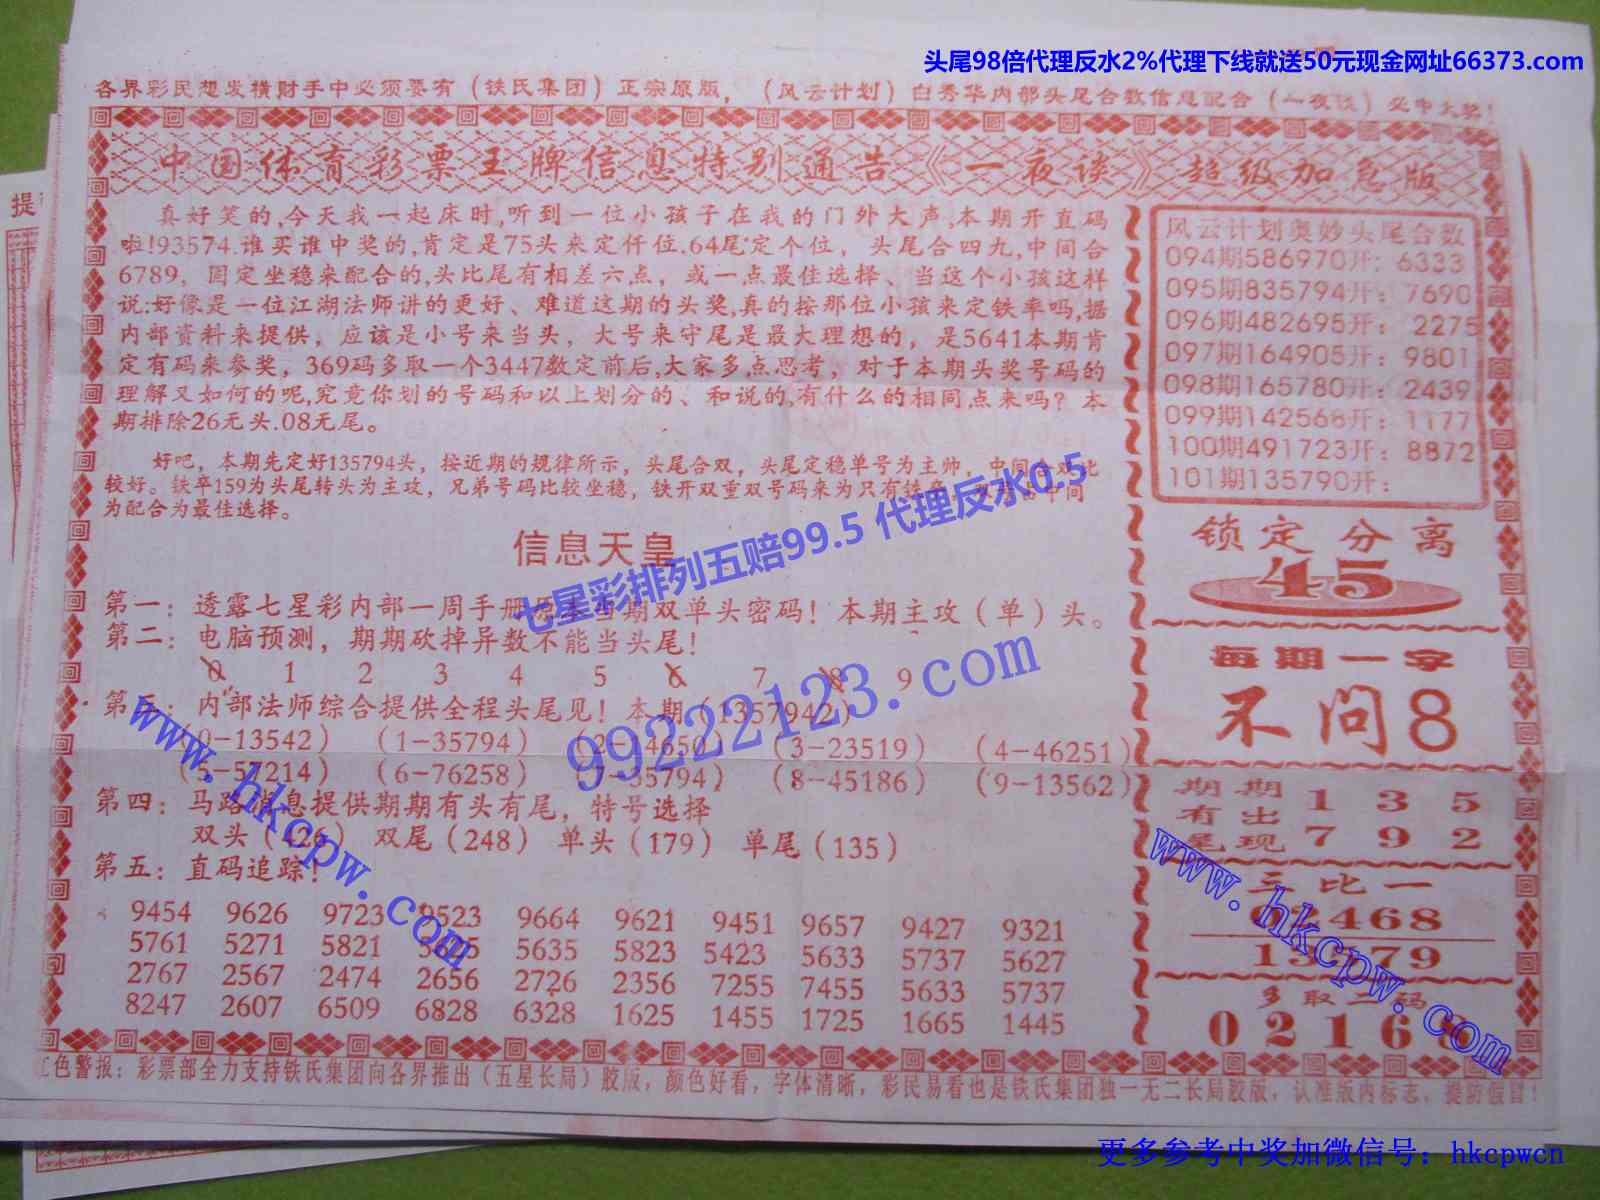 头尾98倍代理反水2%代理下线就送50元现金网址66373.com
各界彩民想发横财手中必须要有（铁氏集团）正宗原版，（风云计划）白秀华内部头尾合数信息配合（一夜谈）必中大奖！
中国体育彩票王牌信息特别通告《一夜谈》超级加急版
真好笑的,今天我一起床时,听到一位小孩子在我的门外大声,本期开直码
啦!93574.谁买谁中奖的,肯定是75头来定仟位.64尾定个位，头尾合四九,中间合
6789，固定坐稳来配合的,头比尾有相差六点，或一点最佳选择、当这个小孩这样
说:好像是一位江湖法师讲的更好、难道这期的头奖,真的按那位小孩来定铁率吗,据
内部资料来提供，应该是小号来当头，大号来守尾是最大理想的，是5641本期肯
定有码来参奖，369码多取一个3447数定前后,大家多点思考，对于本期头奖号码的
理解又如何的呢,究竟你划的号码和以上划分的、和说的,有什么的相同点来吗？本
期排除26无头.08无尾。
好吧，本期先定好135794头，按近期的规律所示，头尾合双，头尾定稳单号为主帅，中间合双比
较好。铁卒159为头尾转头为主攻，兄弟号码比较坐稳，铁开双重双号码来为只有铁卒，双号合中间
为配合为最佳选择。
信息天皇
第一：透露七星彩内部一周手册原本当期双单头密码！本期主攻（单）头。
第二：电脑预测，期期砍掉异数不能当头尾！
0 1 2 3 4 5 6 7 8 9
第三：内部法师综合提供全程头尾见！本期（1357942）
（0-13542）（1-35794）（2-14650）（3-23519）（4-46251）
（5-57214）（6-76258）（7-35794）（8-45186）（9-13562）
第四：马路消息提供期期有头有尾，特号选择
双头（426）双尾（248）单头（179）单尾（135）
第五：直码追踪！
9454 9626 9723 9523 9664 9621 9451 9657 9427 9321
5761 5271 5821 5635 5823 5423 5633 5737 5627
2767 2567 2474 2656 2726 2356 7255 7455 5633 5737
8247 2607 6509 6828 6328 1625 1455 1725 1665 1445
风云计划奥妙头尾合数
094期586970开：6333
095期835794开：7690
096期482695开：2275
097期164905开：9801
098期165780开：2439
099期142568开：1177
100期491723开：8872
101期135790开：
锁定分离
45
每期一字
不问8
期期有出尾现
1 3 5
7 9 2
三比一
02468
13579
多取二码
0 2 1 6 8
红色警报：彩票部全力支持铁氏集团向各界推出（五星长局）胶版，颜色好看，字体清晰，彩民易看也是铁氏集团独一无二长局胶版，认准版内标志，提防假冒！
七星彩排列五赔99.5 代理反水0.5
99222123.com
www.hkcpw.com
www.hkcpw.com
更多参考中奖加微信号：hkcpwcn
提